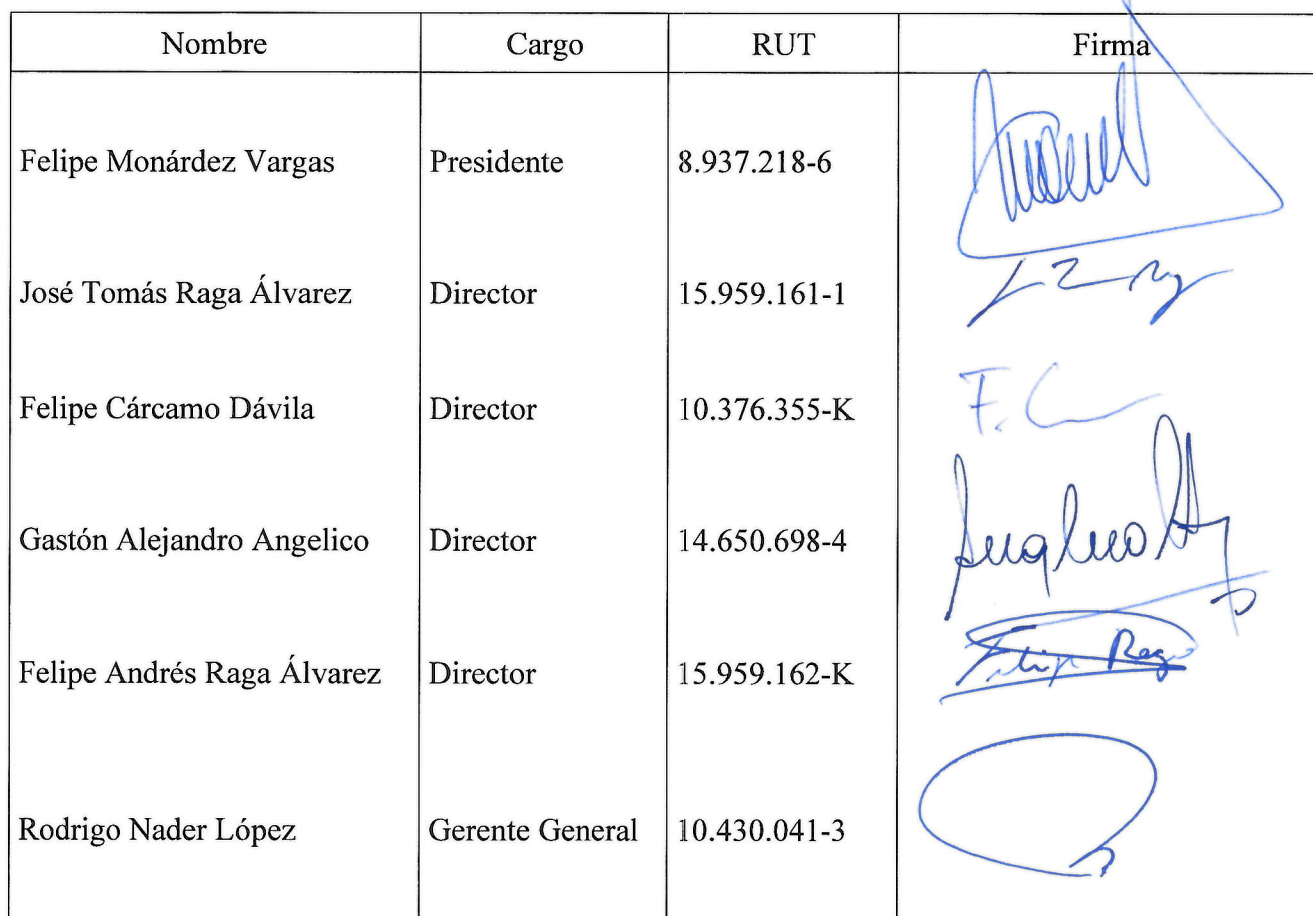 Nombre Cargo RUT Firma
Felipe Monárdez Vargas Presidente 8.937.218-6
José Tomás Raga Álvarez Director 15.959.161-1
Felipe Cárcamo Dávila Director 10.376.355-K F. C
Gastón Alejandro Angelico Director 14.650.698-4
Felipe Andrés Raga Álvarez Director 15.959.162-K Felipe Raga
Rodrigo Nader López Gerente General 10.430.041-3